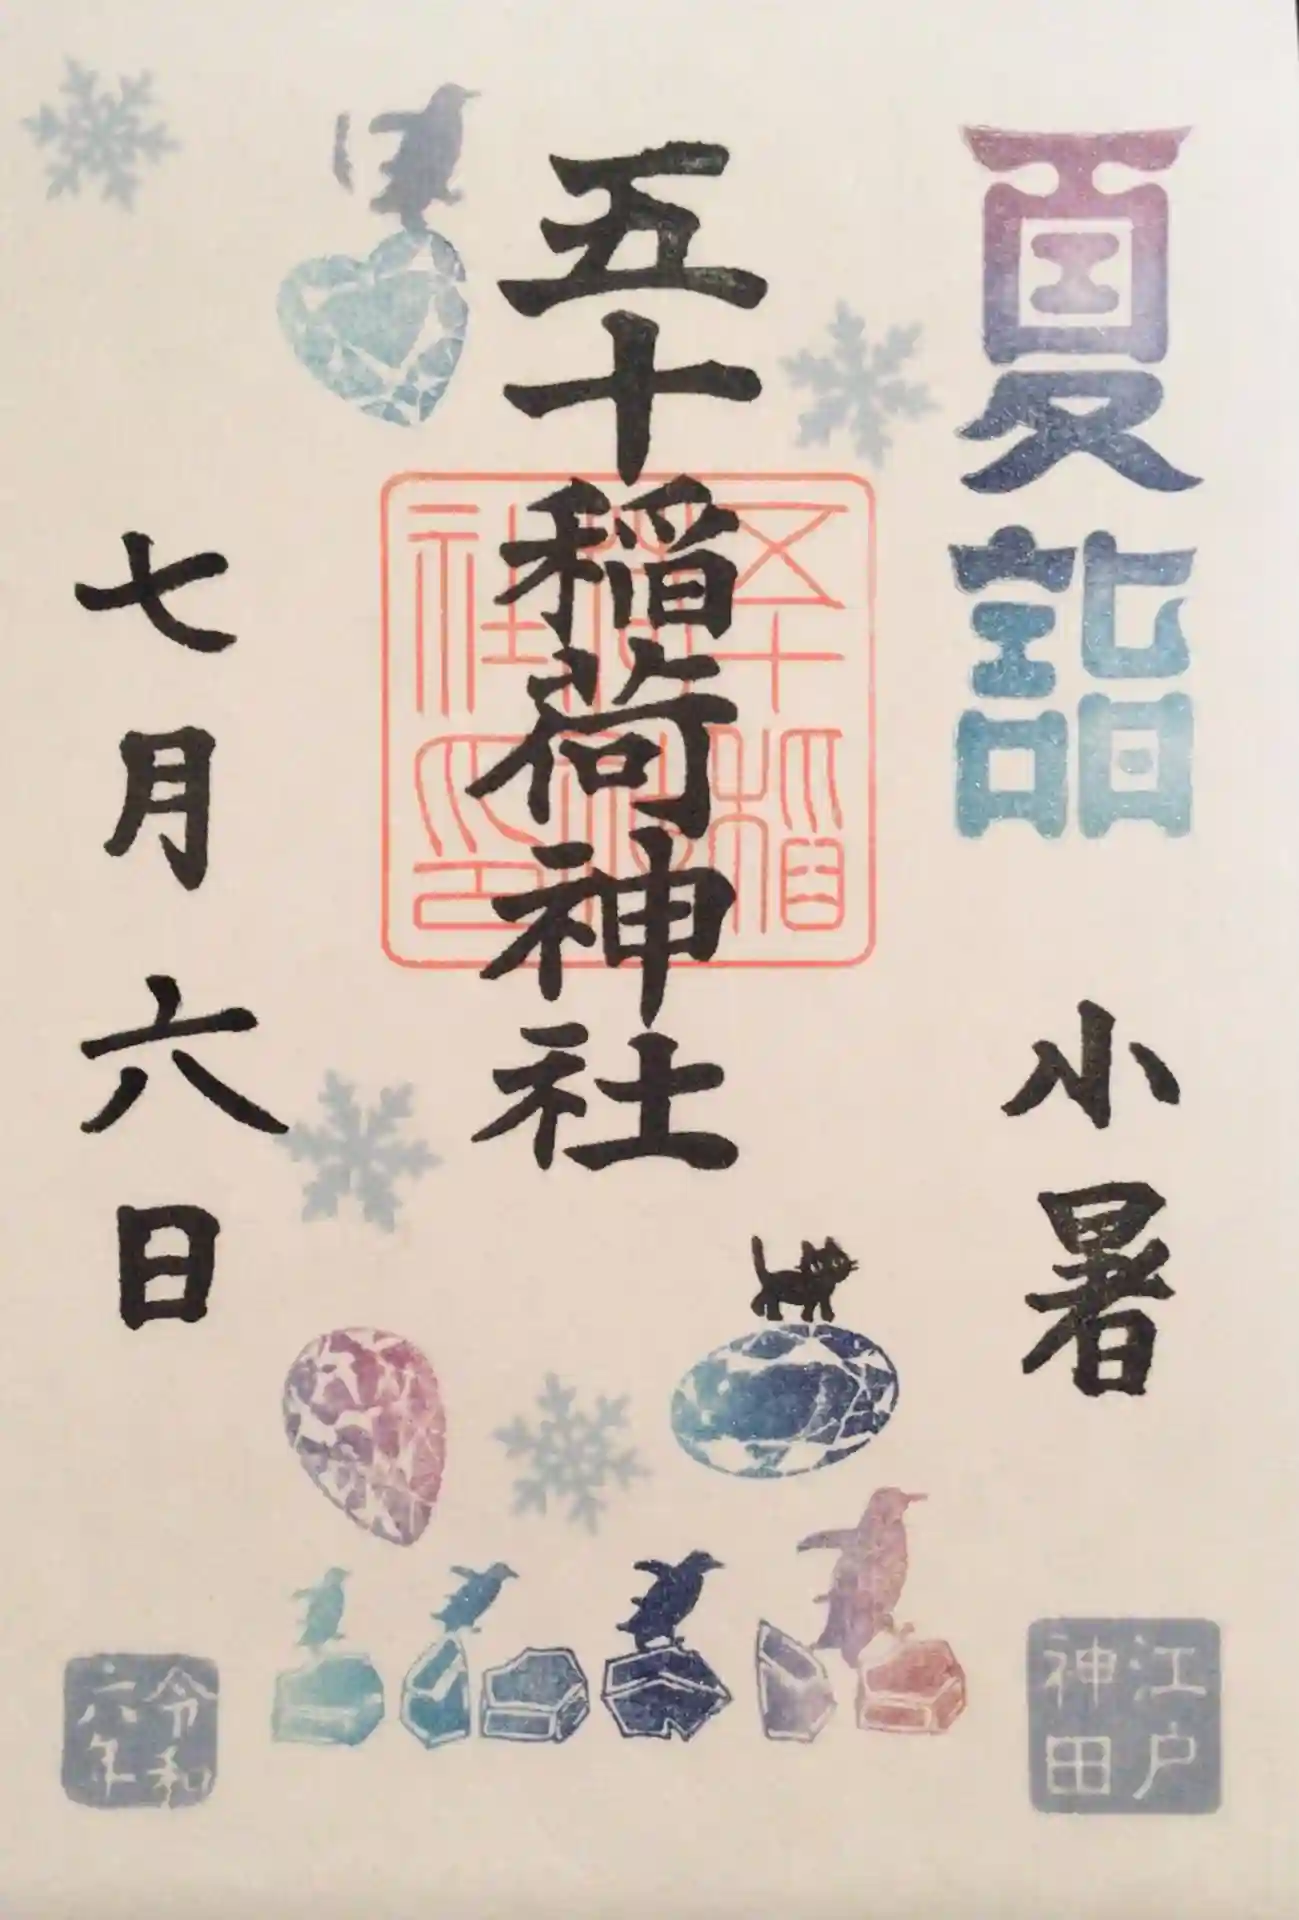 夏詣
小暑
江戸
神田
五十稲荷神社
五十稲
荷神
社印
七月六日
令和
六年